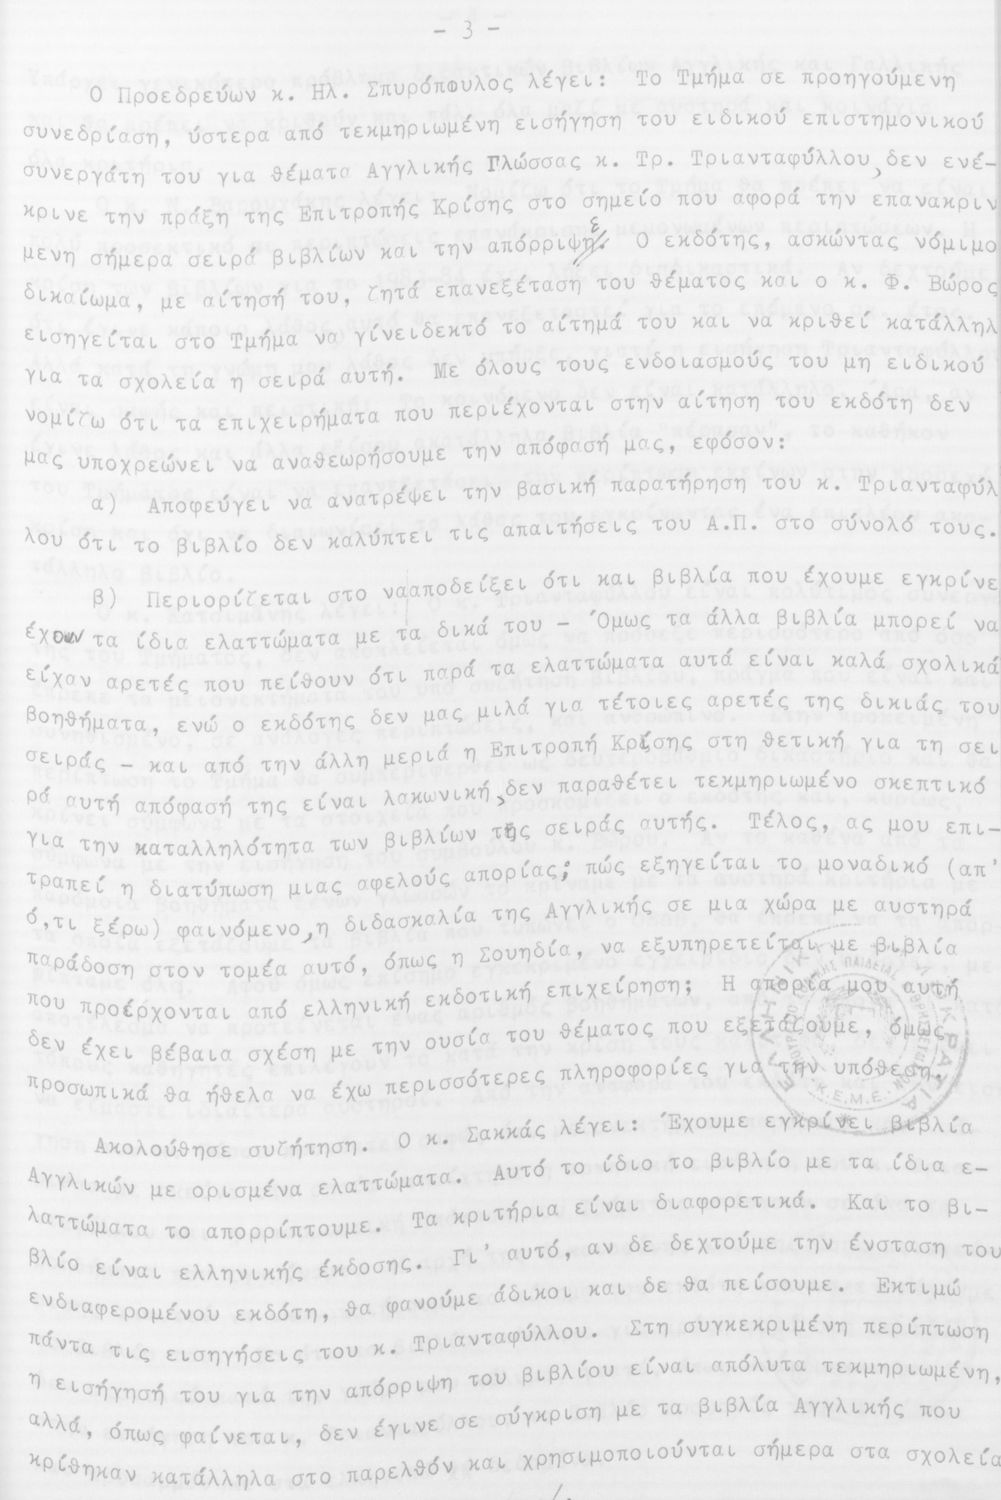 - 3 -
Ο Προεδρεύων κ. Ηλ. Σπυρόπουλος λέγει: Το Τμήμα σε προηγούμενη
συνεδρίαση, ύστερα από τεκμηριωμένη εισήγηση του ειδικού επιστημονικού
συνεργάτη του για θέματα Αγγλικής Γλώσσας κ. Τρ. Τριανταφύλλου, δεν ενέ-
κρινε την πράξη της Επιτροπής Κρίσης στο σημείο που αφορά την επανακριν
μενη σήμερα σειρά βιβλίων και την απόρριψε. Ο εκδότης, ασκώντας νόμιμο
δικαίωμα, με αίτησή του, ζητά επανεξέταση του θέματος και ο κ. Φ. Βώρος
εισηγείται στο Τμήμα να γίνειδεκτό το αίτημά του και να κριθεί κατάλληλ
για τα σχολεία η σειρά αυτή. Με όλους τους ενδοιασμούς του μη ειδικού
νομίζω ότι τα επιχειρήματα που περιέχονται στην αίτηση του εκδότη δεν
μας υποχρεώνει να αναθεωρήσουμε την απόφασή μας, εφόσον:
α) Αποφεύγει να ανατρέψει την βασική παρατήρηση του κ. Τριανταφύλ
λου ότι το βιβλίο δεν καλύπτει τις απαιτήσεις του Α.Π. στο σύνολό τους.
β) Περιορίζεται στο νααποδείξει ότι και βιβλία που έχουμε εγκρίνε
έχουν τα ίδια ελαττώματα με τα δικά του - Όμως τα άλλα βιβλία μπορεί να
είχαν αρετές που πείθουν ότι παρά τα ελαττώματα αυτά είναι καλά σχολικά
βοηθήματα, ενώ ο εκδότης δεν μας μιλά για τέτοιες αρετές της δικιάς του
σειράς - και από την άλλη μεριά η Επιτροπή Κρίσης στη θετική για τη σει
ρά αυτή απόφασή της είναι λακωνική, δεν παραθέτει τεκμηριωμένο σκεπτικό
για την καταλληλότητα των βιβλίων της σειράς αυτής. Τέλος, ας μου επι-
τραπεί η διατύπωση μιας αφελούς απορίας; πώς εξηγείται το μοναδικό (απ'
ό,τι ξέρω) φαινόμενο, η διδασκαλία της Αγγλικής σε μια χώρα με αυστηρά
παράδοση στον τομέα αυτό, όπως η Σουηδία, να εξυπηρετείται με βιβλία
που προέρχονται από ελληνική εκδοτική επιχείρηση; Η απορία μου αυτή
δεν έχει βέβαια σχέση με την ουσία του θέματος που εξετάζουμε, όμως
προσωπικά θα ήθελα να έχω περισσότερες πληροφορίες για την υπόθεση.
Ακολούθησε συζήτηση. Ο κ. Σακκάς λέγει: Έχουμε εγκρίνει βιβλία
Αγγλικών με ορισμένα ελαττώματα. Αυτό το ίδιο το βιβλίο με τα ίδια ε-
λαττώματα το απορρίπτουμε. Τα κριτήρια είναι διαφορετικά. Και το βι-
βλίο είναι ελληνικής έκδοσης. Γι' αυτό, αν δε δεχτούμε την ένσταση του
ενδιαφερομένου εκδότη, θα φανούμε άδικοι και δε θα πείσουμε. Εκτιμώ
πάντα τις εισηγήσεις του κ. Τριανταφύλλου. Στη συγκεκριμένη περίπτωση
η εισήγησή του για την απόρριψη του βιβλίου είναι απόλυτα τεκμηριωμένη,
αλλά, όπως φαίνεται, δεν έγινε σε σύγκριση με τα βιβλία Αγγλικής που
κρίθηκαν κατάλληλα στο παρελθόν και χρησιμοποιούνται σήμερα στα σχολεία
./.